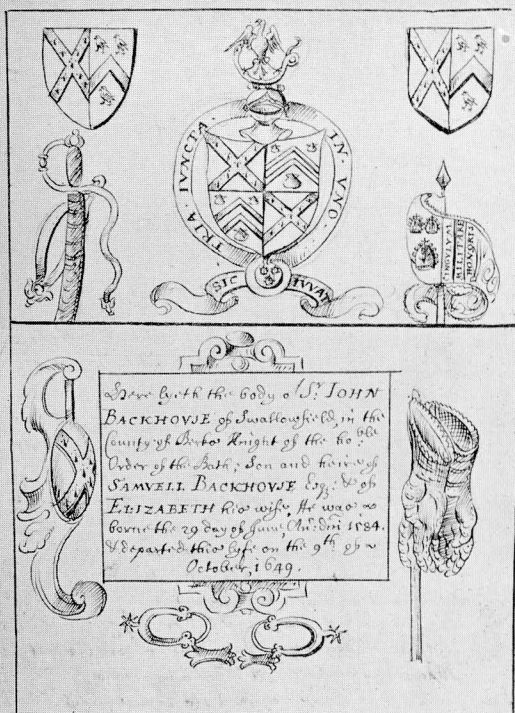 TRIA · IVNCTA · IN · VNO ·
SIC IVVAT
CINGVLVM
MILITARE
HONORIS
Here lyeth the body of Sr. IOHN
BACKHOVSE of Swallowfield, in the
County of Berks Knight of the hoble
Order of the Bath; Son and heire of
SAMVELL BACKHOVSE Esq; & of
ELIZABETH his wife, He was
borne the 29 day of June, An: dni 1584.
& departed this lyfe on the 9th of
October, 1649.